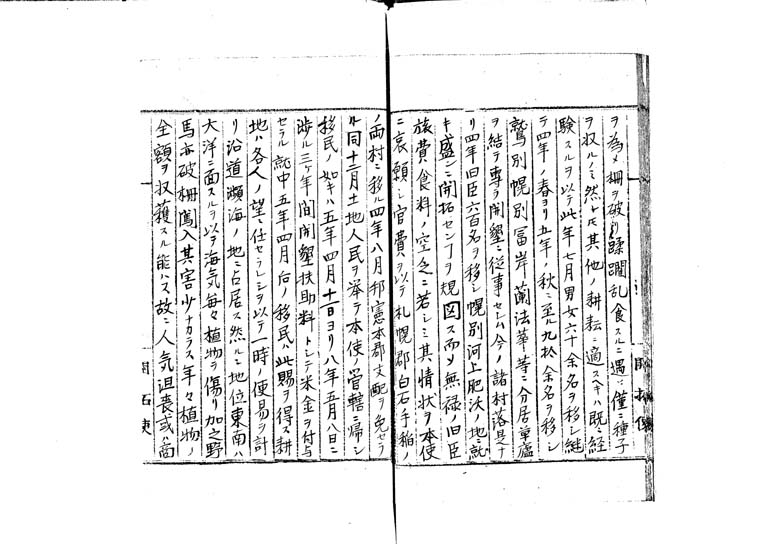 ヲ為メ柵ヲ破リ蹂躙乱食スルニ遇ヒ僅ニ種子
ヲ収ルノミ然レ𪜈其他ノ耕耘ニ適スヘキハ既ニ経
験スルヲ以テ此年七月男女六十余名ヲ移シ継
テ四年ノ春ヨリ五年ノ秋ニ至ル九拾余名ヲ移シ
鷲別幌別冨岸蘭法華等ニ分居草廬
ヲ結テ専ラ開墾ニ従事セシム今ノ諸村落是ナ
リ四年旧臣六百名ヲ移シ幌別河上肥沃ノ地ニ就
キ盛ンニ開拓センヿヲ規図ス而メ無禄ノ旧臣
旅費食料ノ空乏ニ若シミ其情状ヲ本使
ニ哀願シ官費ヲ以テ札幌郡白石手稲ノ
ノ両村ニ移ル四年八月邦憲本郡支配ヲ免セラ
ル同十二月土地人民ヲ挙テ本使ノ管轄ニ帰シ
移民ノ如キハ五年四月十一日ヨリ八年五月八日ニ
渉ル三ケ年間開墾扶助料トシテ米金ヲ付与
セラル就中五年四月后ノ移民ハ此賜ヲ得ス耕
地ハ各人ノ望ニ仕セラレシヲ以テ一時ノ便易ヲ計
リ沿道瀕海ノ地ニ占居ス然ルニ地位東南ハ
大洋ニ面スルヲ以テ海気毎々植物ヲ傷リ加之野
馬亦破柵闖入其害少ナカラス年々植物ノ
全額ヲ収獲スル能ハス故ニ人気沮喪或ハ商
開拓使
開拓使